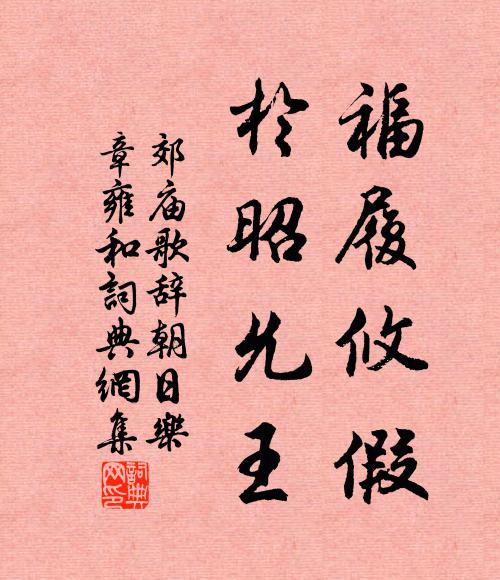 福履攸假
於昭允王
郊庙歌辞朝日樂
章雍和詞典網集
詞典网印